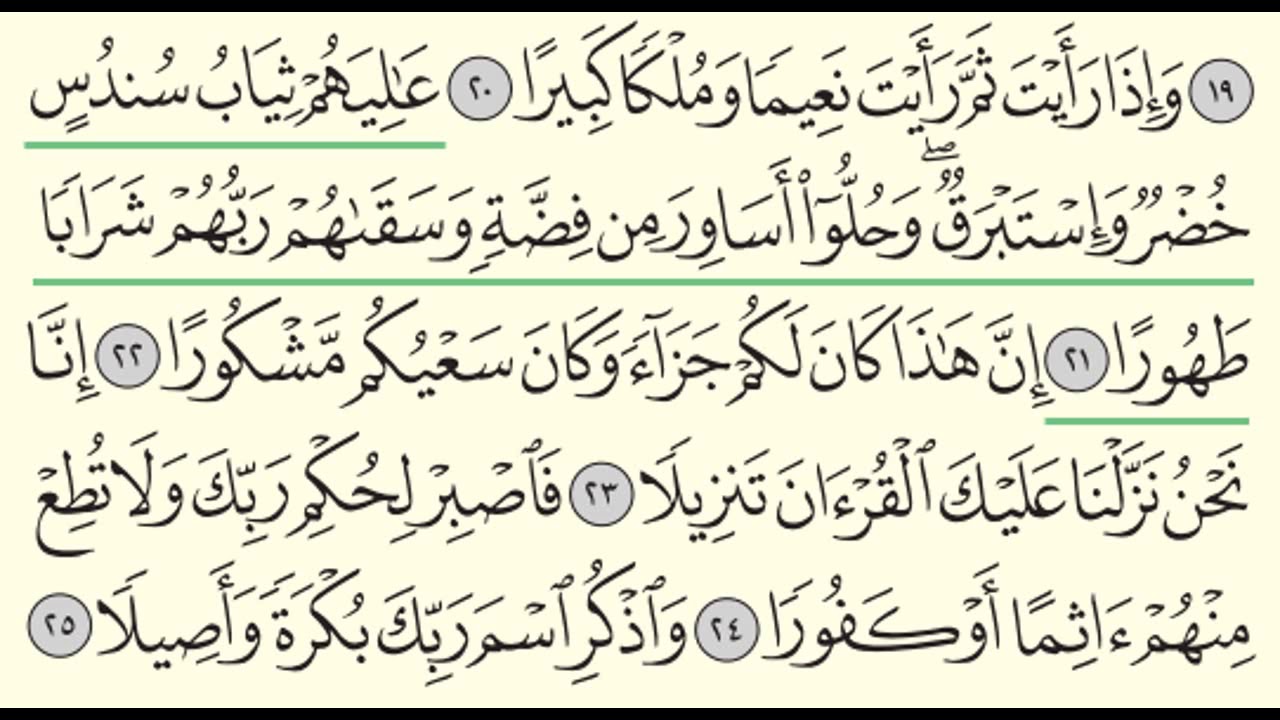 ١٩ وَإِذَا رَأَيْتَ ثَمَّ رَأَيْتَ نَعِيمًا وَمُلْكًا كَبِيرًا ٢٠ عَـٰلِيَهُمْ ثِيَابُ سُندُسٍ
خُضْرٌ وَإِسْتَبْرَقٌ ۖ وَحُلُّوٓا۟ أَسَاوِرَ مِن فِضَّةٍ وَسَقَىٰهُمْ رَبُّهُمْ شَرَابًا
طَهُورًا ٢١ إِنَّ هَـٰذَا كَانَ لَكُمْ جَزَآءً وَكَانَ سَعْيُكُم مَّشْكُورًا ٢٢ إِنَّا
نَحْنُ نَزَّلْنَا عَلَيْكَ ٱلْقُرْءَانَ تَنزِيلًا ٢٣ فَٱصْبِرْ لِحُكْمِ رَبِّكَ وَلَا تُطِعْ
مِنْهُمْ ءَاثِمًا أَوْ كَفُورًا ٢٤ وَٱذْكُرِ ٱسْمَ رَبِّكَ بُكْرَةً وَأَصِيلًا ٢٥